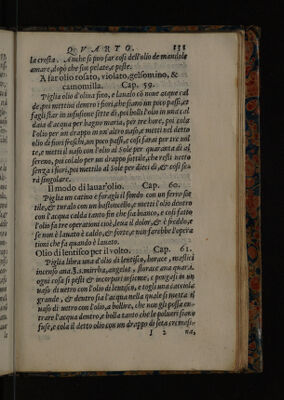 QVARTO. 131
la crosta. Anche si puo far cosi dell'olio de mandole
amare, dopò che sia pelate, e peste.
A far olio rosato, violato, gelsomino, &
camomilla. Cap. 59.
Piglia olio d'oliua fino, e laualo cō noue acque cal
de, poi mettiui dentro i fiori, che siano un poco passi, et
fagli star in infusione sette dì, poi bolli l'olio in una cal
data d'acqua per bagno maria, per tre hore, poi cola
l'olio per un drappo in un'altro uaso, e metti nel detto
olio di fiori freschi, un poco passi, e così farai per tre uol
te, e metti il uaso con l'olio al Sole per quaranta dì al
sereno, poi colalo per un drappo sottile, che resti netto
senza i fiori, poi mettilo al Sole per dieci dì, & così se-
rà singolare.
Il modo di lauar'olio. Cap. 60.
Piglia un catino e foragli il fondo con un ferro sot
tile, & turalo con un bastoncello, e metti l'olio dentro
con l'acqua calda tanto fin che sia bianco, e così fatto
l'olio fa tre operationi cioè, leua il dolor, & è freddo, e
se non è lauato è caldo, & forte, e non farebbe l'opera
tioni che fa quando è lauato.
Olio di lentisco per il volto. Cap. 61.
Piglia libra una d'olio di lentisco, borace, mastici
incenso ana. mirrha, ana quarta.
ogni cosa sì pesti & incorpori insieme, e pongasi in un
uaso di uetro con l'olio di lentisco, e togli una caccola
grande, & dentro sia l'acqua nella quale si metta il
uaso di uetro con l'olio, a bollire, che non gli possa en-
trare l'acqua dentro, e bolla tanto che le polueri siano
fuse, e cola il detto olio con un drappo di seta cremesi-
I 2 na,